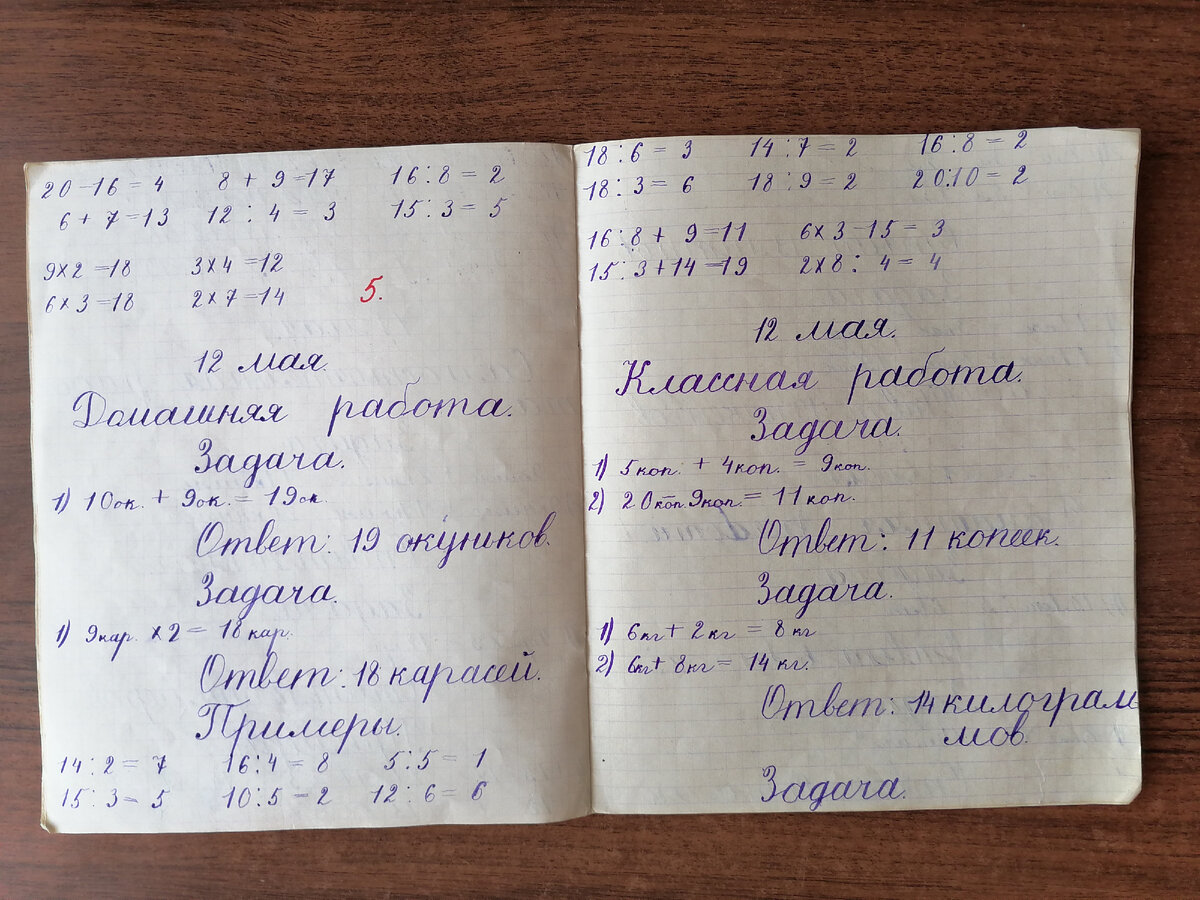 20-16=4 8+9=17 16:8=2
6+7=13 12:4=3 15:3=5
9x2=18 3x4=12
6x3=18 2x7=14 5.
12 мая.
Домашняя работа.
Задача.
1) 10ок. + 9ок. = 19ок.
Ответ: 19 окуньков.
Задача.
1) 9кар. x2 = 18кар.
Ответ: 18 карасей.
Примеры.
14:2=7 16:4=8 5:5=1
15:3=5 10:5=2 12:6=6
18:6=3 14:7=2 16:8=2
18:3=6 18:9=2 20:10=2
16:8+9=11 6x3-15=3
15:3+14=19 2x8:4=4
12 мая.
Классная работа.
Задача.
1) 5коп. + 4коп. = 9коп.
2) 20коп.-9коп. = 11коп.
Ответ: 11 копеек.
Задача.
1) 6кг+2кг=8кг
2) 6кг+8кг=14кг.
Ответ: 14 килограм
мов.
Задача.